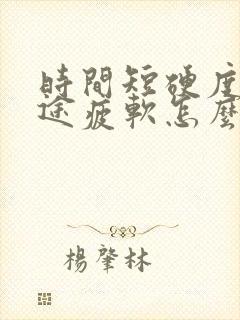 時間短硬度
途疲軟怎麼
楊肇林